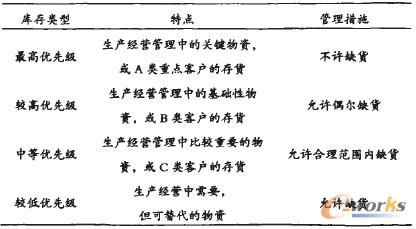 库存类型 特点 管理措施
生产经营管理中的关键物资，
最高优先级 不许缺货
或A类重点客户的存货
生产经营管理中的基础性物
较高优先级 允许偶尔缺货
资，或B类客户的存货
生产经营管理中比较重要的物
中等优先级 允许合理范围内缺货
资，或C类客户的存货
生产经营中需要，
较低优先级 允许缺货
但可替代的物资
e-works